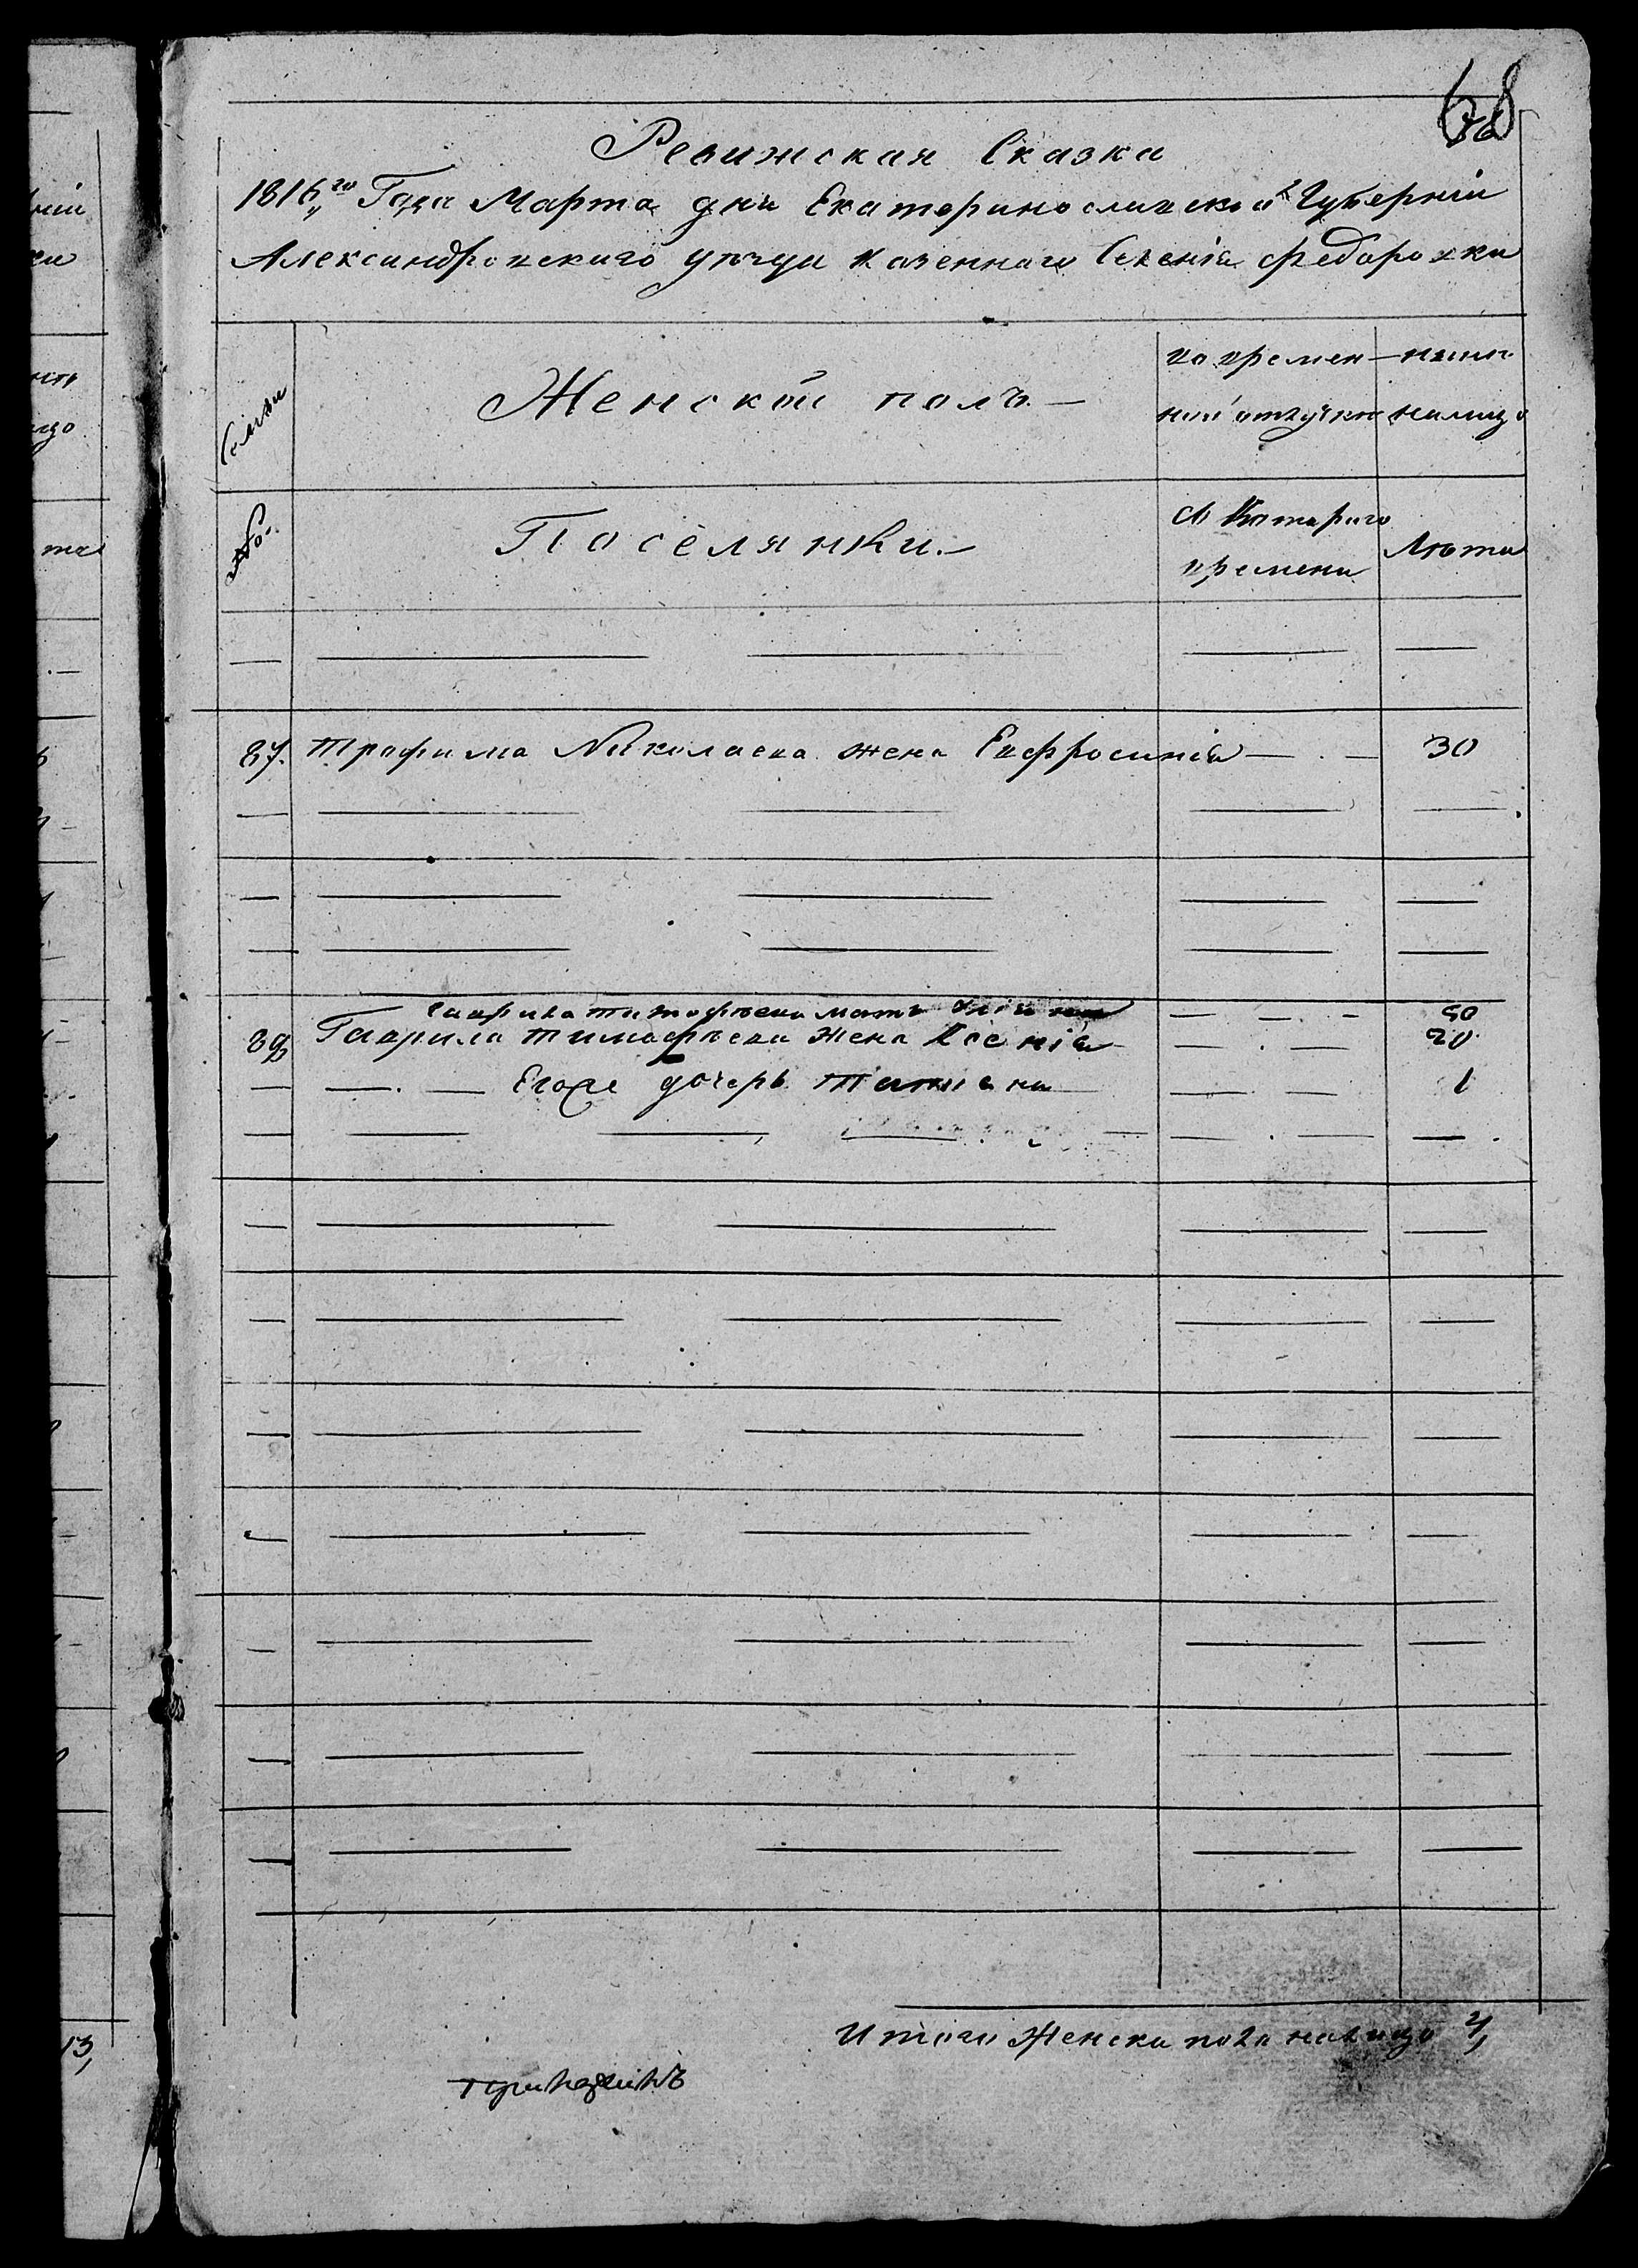 68
Ревижская Сказка
1816го Года Марта дня Екатеринославской Губерніи
Александровскаго уѣзда казеннаго Селенія Федоровки
Семьи
Женской полъ.—
во времен—
ной отлучке
ныне
налицо
Поселянки.—
С Котораго
времени
Лѣта
87. Трофима Николаева жена Евфросинія — . — 30
Гаврила Тимофѣева мать — . — 50
Гаврила Тимофѣева Жена Ксенія — . — 20
— . — Егоже дочерь Татияна — . — 1
Итого Женска пола налицо 4,
13,